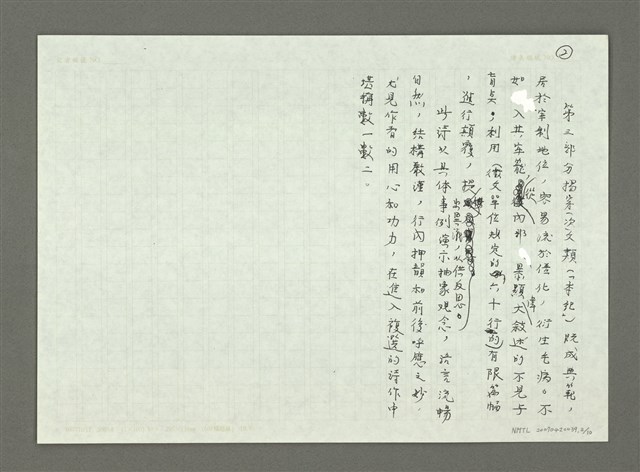 ②
第三部分揭穿(次)文類(「本紀」)既成典範,
居於宰制地位,容易流於僵化,衍生毛病。不
如入其牢籠,從內部景顯大敘述的不見与
盲臭,利用(徵文單位規定的)六十行的有限篇幅
,進行顛覆,
此詩以具体事例演示抽象观念,語言流暢
自然,結構嚴谨,行內押韻和前後呼應之妙,
尤見作者的用心和功力,在進入複選的詩作中
堪稱數一數二。
NMTL